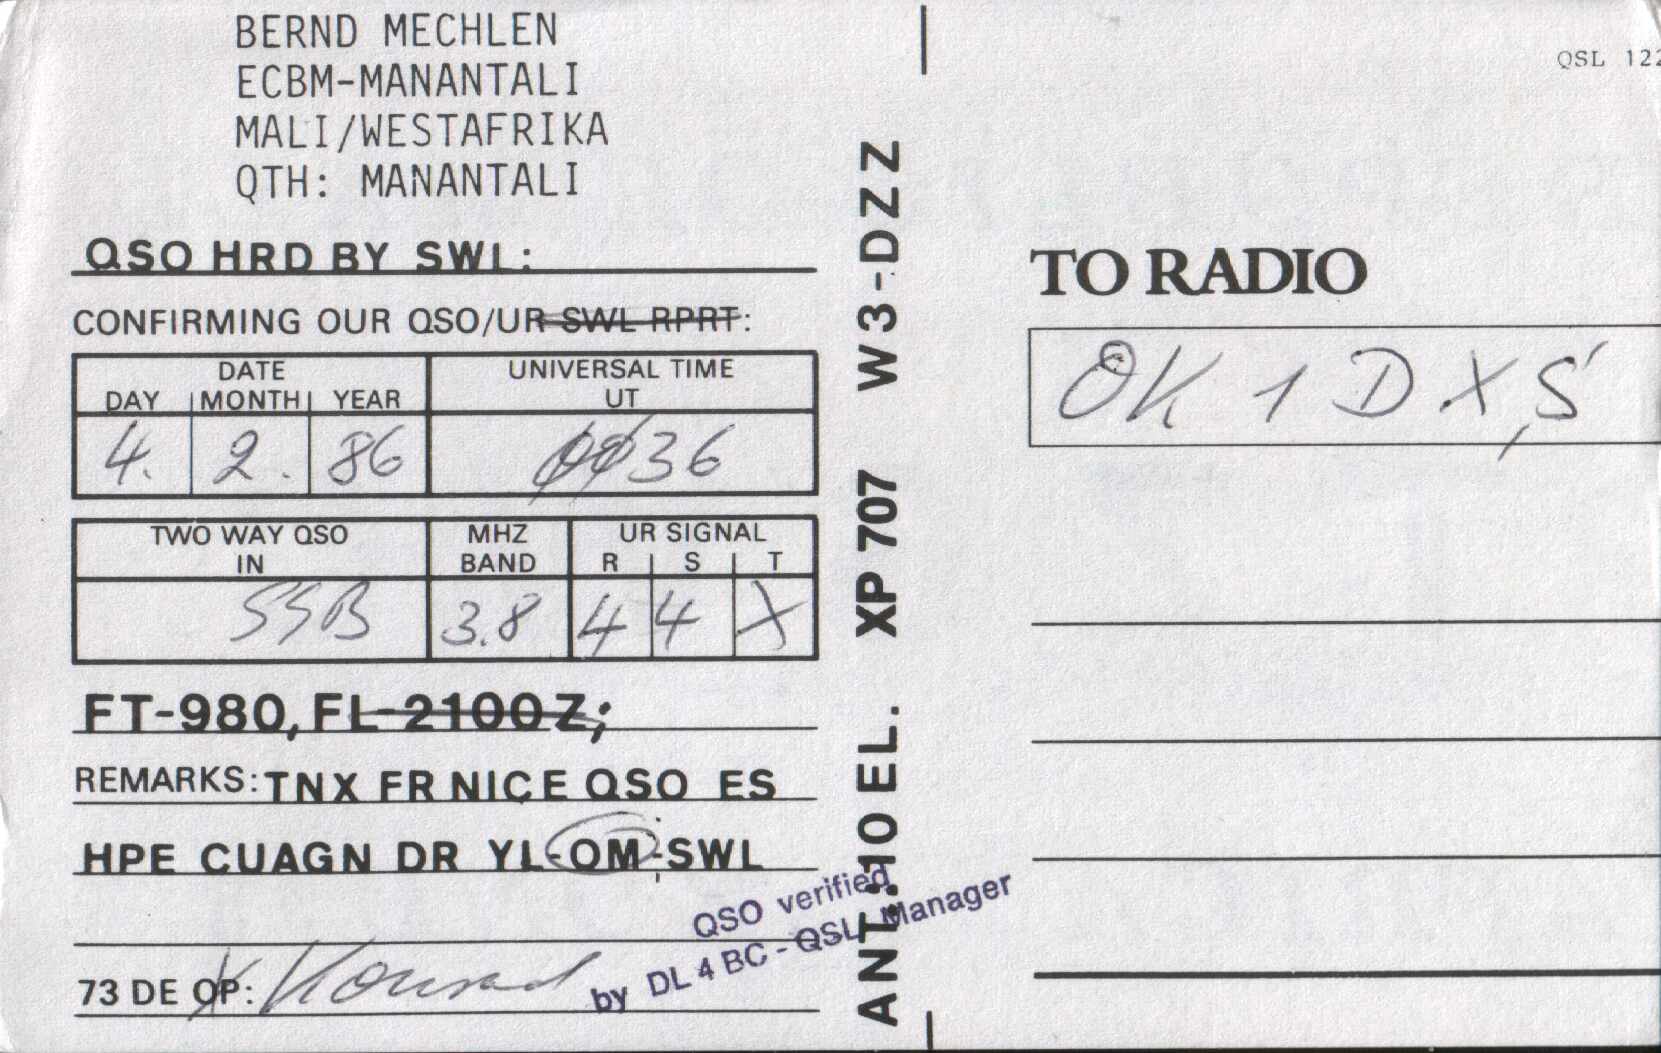 BERND MECHLEN
ECBM-MANANTALI
MALI/WESTAFRIKA
QTH: MANANTALI
QSO HRD BY SWL:
CONFIRMING OUR QSO/UR SWL RPRT:
DATE
DAY MONTH YEAR
UNIVERSAL TIME
UT
4. 2. 86
0036
TWO WAY QSO
IN
MHZ
BAND
UR SIGNAL
R S T
SSB 3.8 4 4 X
FT-980, FL-2100Z;
REMARKS: TNX FR NICE QSO ES
HPE CUAGN DR YL-OM-SWL
73 DE OP: Konrad
QSO verified
by DL 4 BC - QSL Manager
ANT.: 10 EL. XP 707 W3-DZZ
QSL 122
TO RADIO
OK1DXS